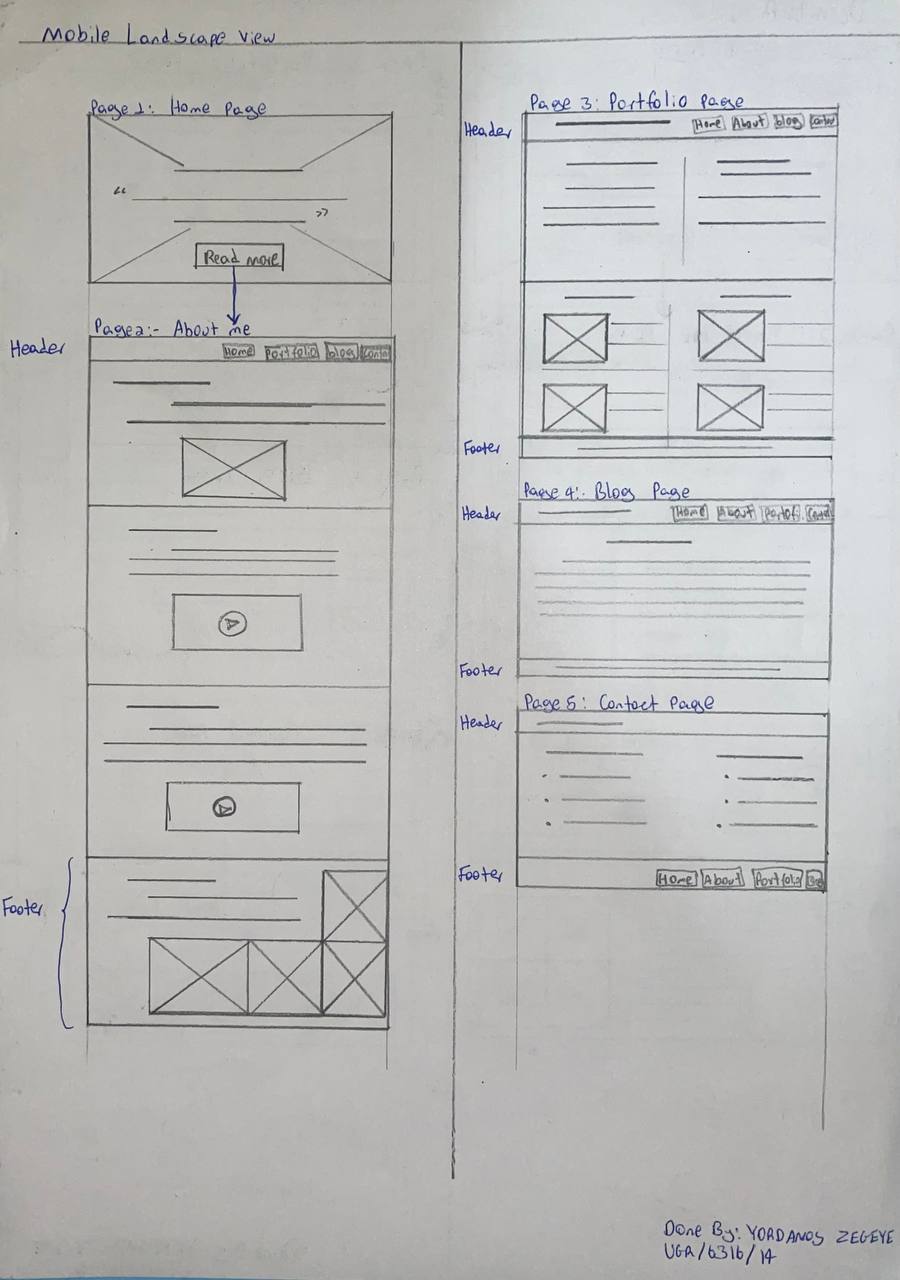 Mobile Landscape view
Page 1: Home Page
“
”
Read more
Page 2:- About me
Header
Home Portfolio blog
Footer
Page 3: Portfolio Page
Header
Home About blog
Footer
Page 4:. Blog Page
Header
Home About Portof.
Footer
Page 5: Contact Page
Header
Footer
Home About Portfolio
Done By: YORDANOS ZEGEYE
UGR/6316/14